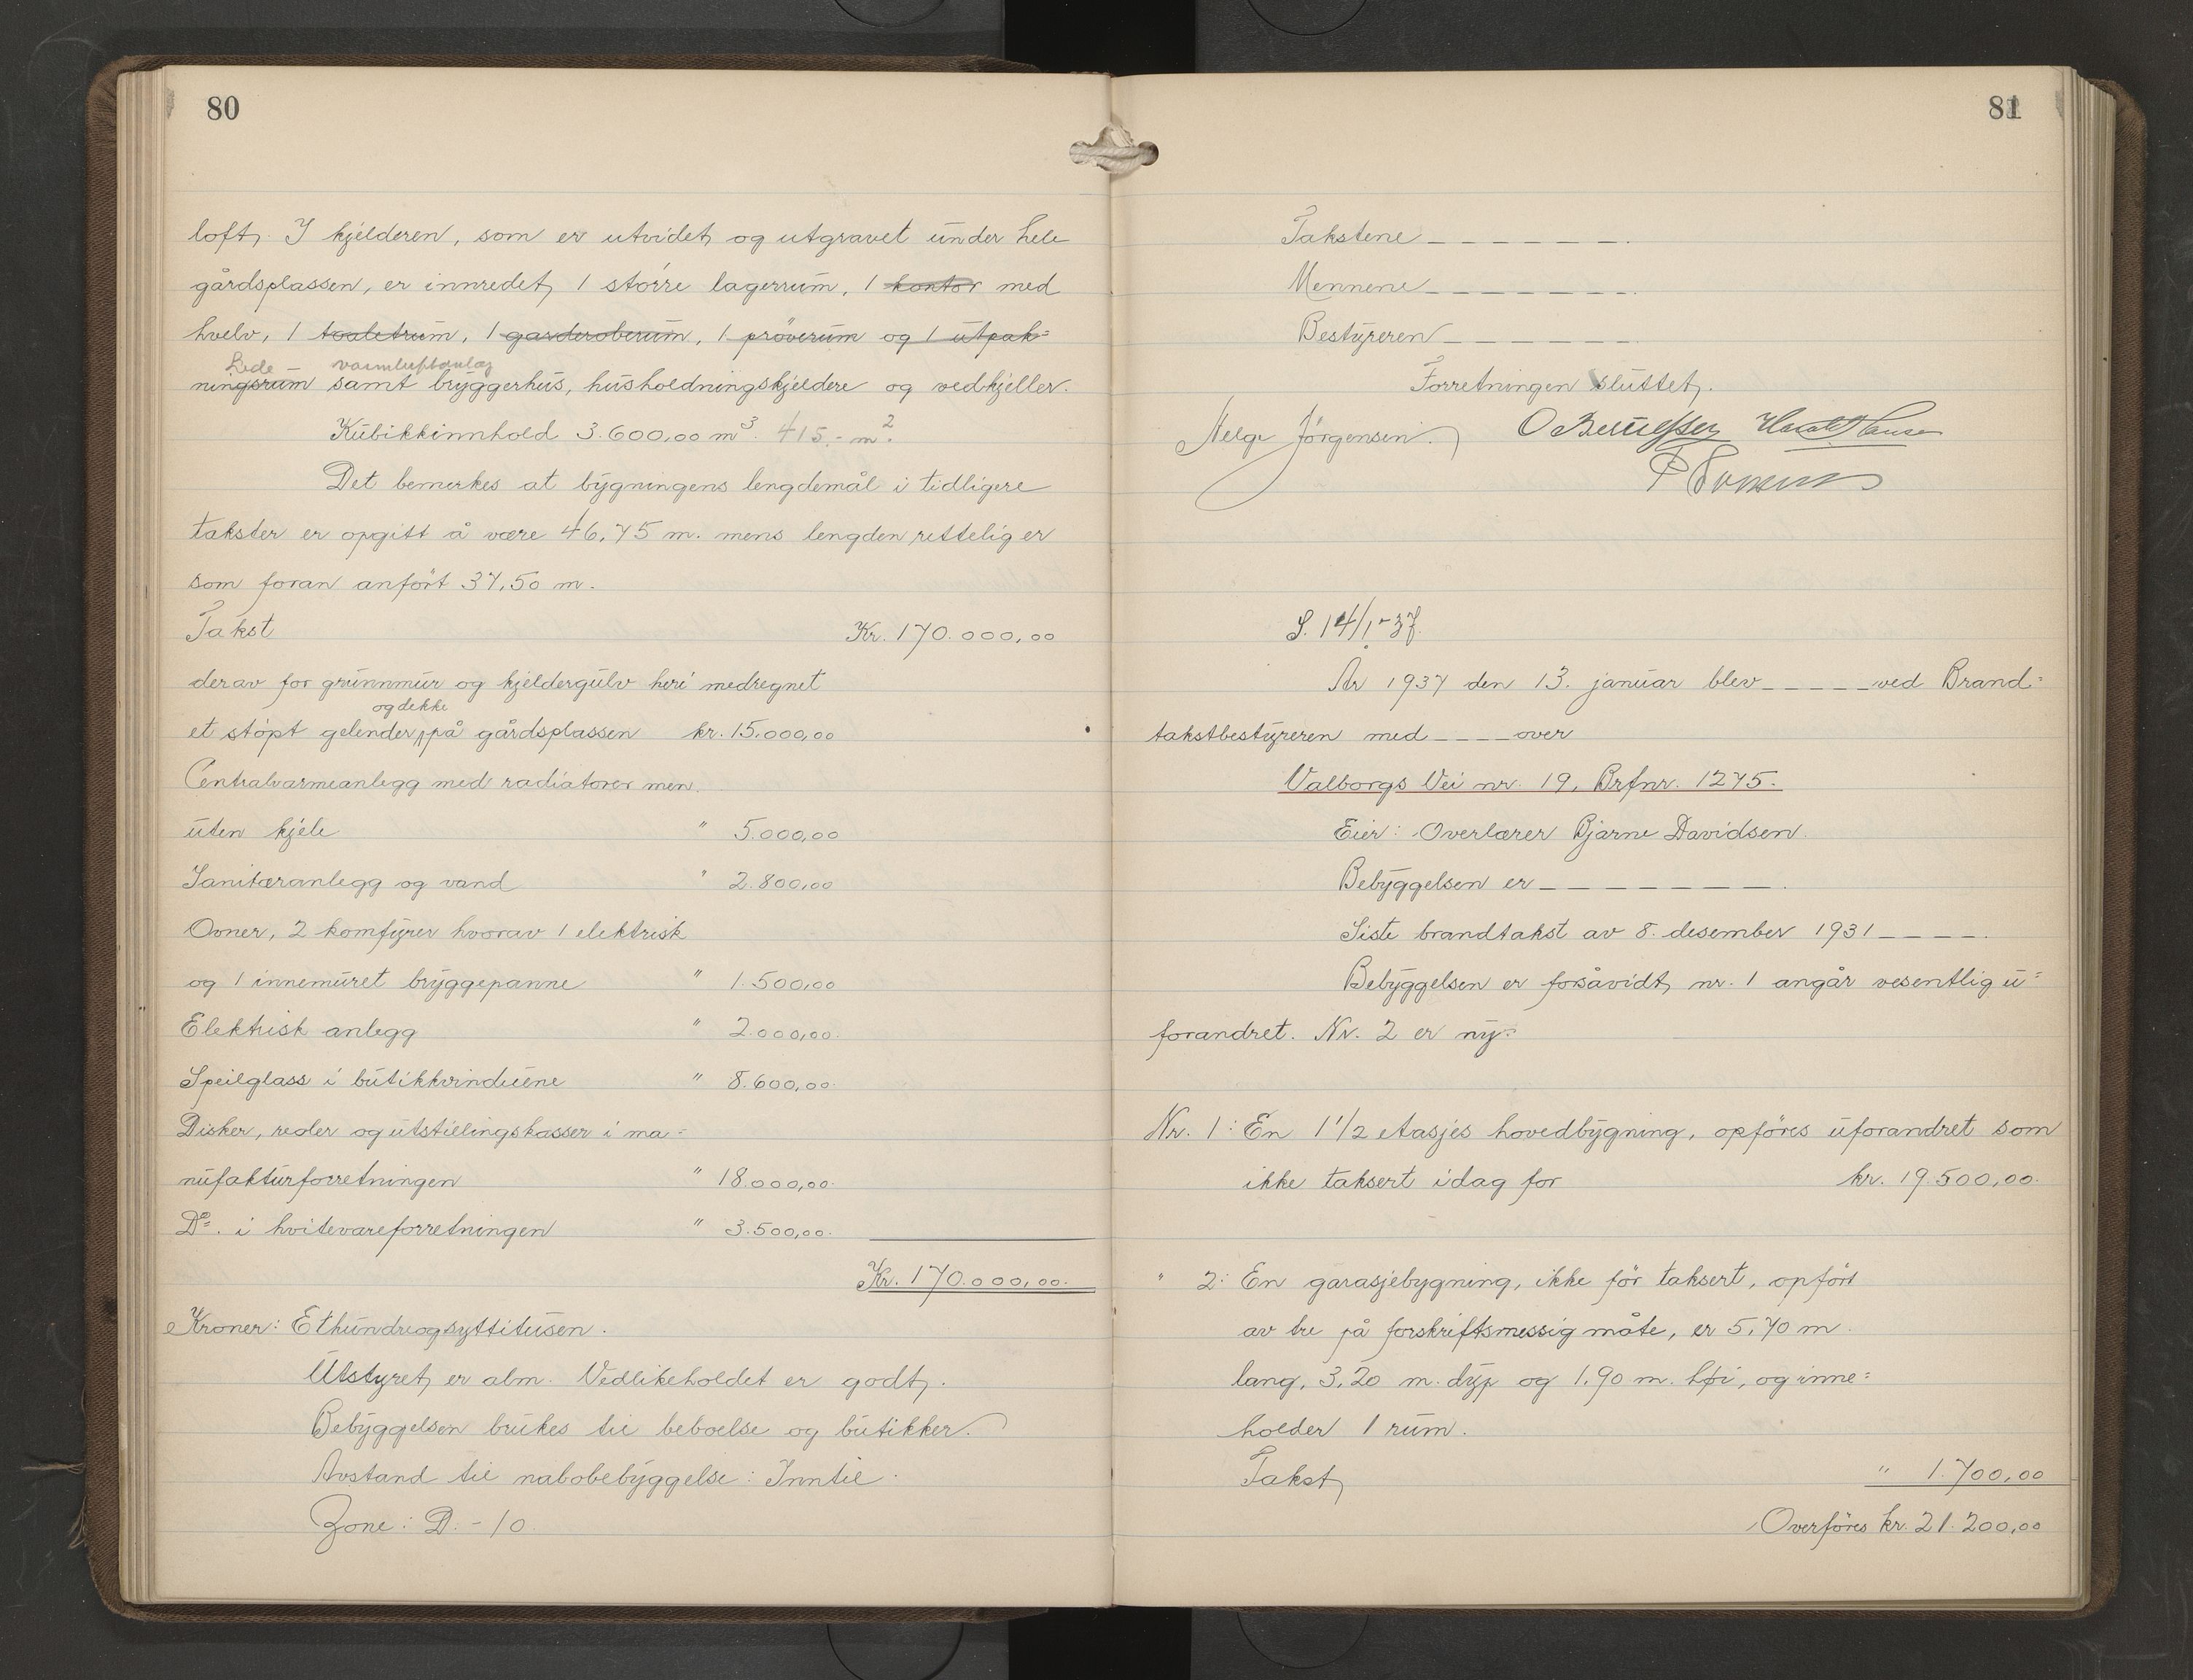 80
loft. I kjelderen, som er utvidet og utgravet under hele
gårdsplassen, er innredet 1 større lagerrum, 1 kontor med
hvelv, 1 toaletrum, 1 garderoberum, 1 prøverum og 1 utpak=
varmluftanlæg
ningsrum samt bryggerhus, husholdningskjeldere og vedkjeller.
Kubikkinnhold 3.600,00 m³. 415,- m².
Det bemerkes at bygningens lengdemål i tidligere
takster er opgitt å være 46,75 m. mens lengden rettelig er
som foran anført 37,50 m.
Takst Kr. 170.000,00
derav for grunnmur og kjeldergulv heri medregnet
og dekke
et støpt gelender på gårdsplassen kr. 15.000,00
Centralvarmeanlegg med radiatorer men
uten kjele " 5.000,00
Sanitæranlegg og vand " 2.800,00
Ovner, 2 komfyrer hvorav 1 elektrisk
og 1 innemuret bryggepanne " 1.500,00
Elektrisk anlegg " 2.000,00.
Speilglass i butikkvinduene " 8.600,00.
Disker, reoler og utstillingskasser i ma=
nufakturforretningen " 18.000,00.
Do. i hvitevareforretningen " 3.500,00.
Kr. 170.000,00.
Kroner: Ethundreogsyttitusen.
Utstyret er alm. Vedlikeholdet er godt.
Bebyggelsen brukes til beboelse og butikker.
Avstand til nabobebyggelse: Inntil.
Zone: D. - 10.
81
Takstene _ _ _ _ _ _ _.
Mennene _ _ _ _ _ _ _.
Bestyreren _ _ _ _ _ _ _.
Forretningen sluttet.
Helge Jørgensen. Harald Hansen
S. 14/1-37.
År 1937 den 13. januar blev _ _ _ _ _ ved Brand=
takstbestyreren med _ _ _ _ over
Valborgs Vei nr. 19, Brfnr. 1275.
Eier: Overlærer Bjarne Davidsen.
Bebyggelsen er _ _ _ _ _ _ _ _.
Siste brandtakst av 8. desember 1931 _ _ _ _.
Bebyggelsen er forsåvidt nr. 1 angår vesentlig u=
forandret. Nr. 2 er ny:
Nr. 1: En 1 1/2 etasjes hovedbygning, opføres uforandret som
ikke taksert idag for kr. 19.500,00.
" 2: En garasjebygning, ikke før taksert, opført
av tre på forskriftsmessig måte, er 5,70 m.
lang, 3,20 m. dyp og 1,90 m. høi, og inne=
holder 1 rum.
Takst " 1.700,00
Overføres kr. 21.200,00